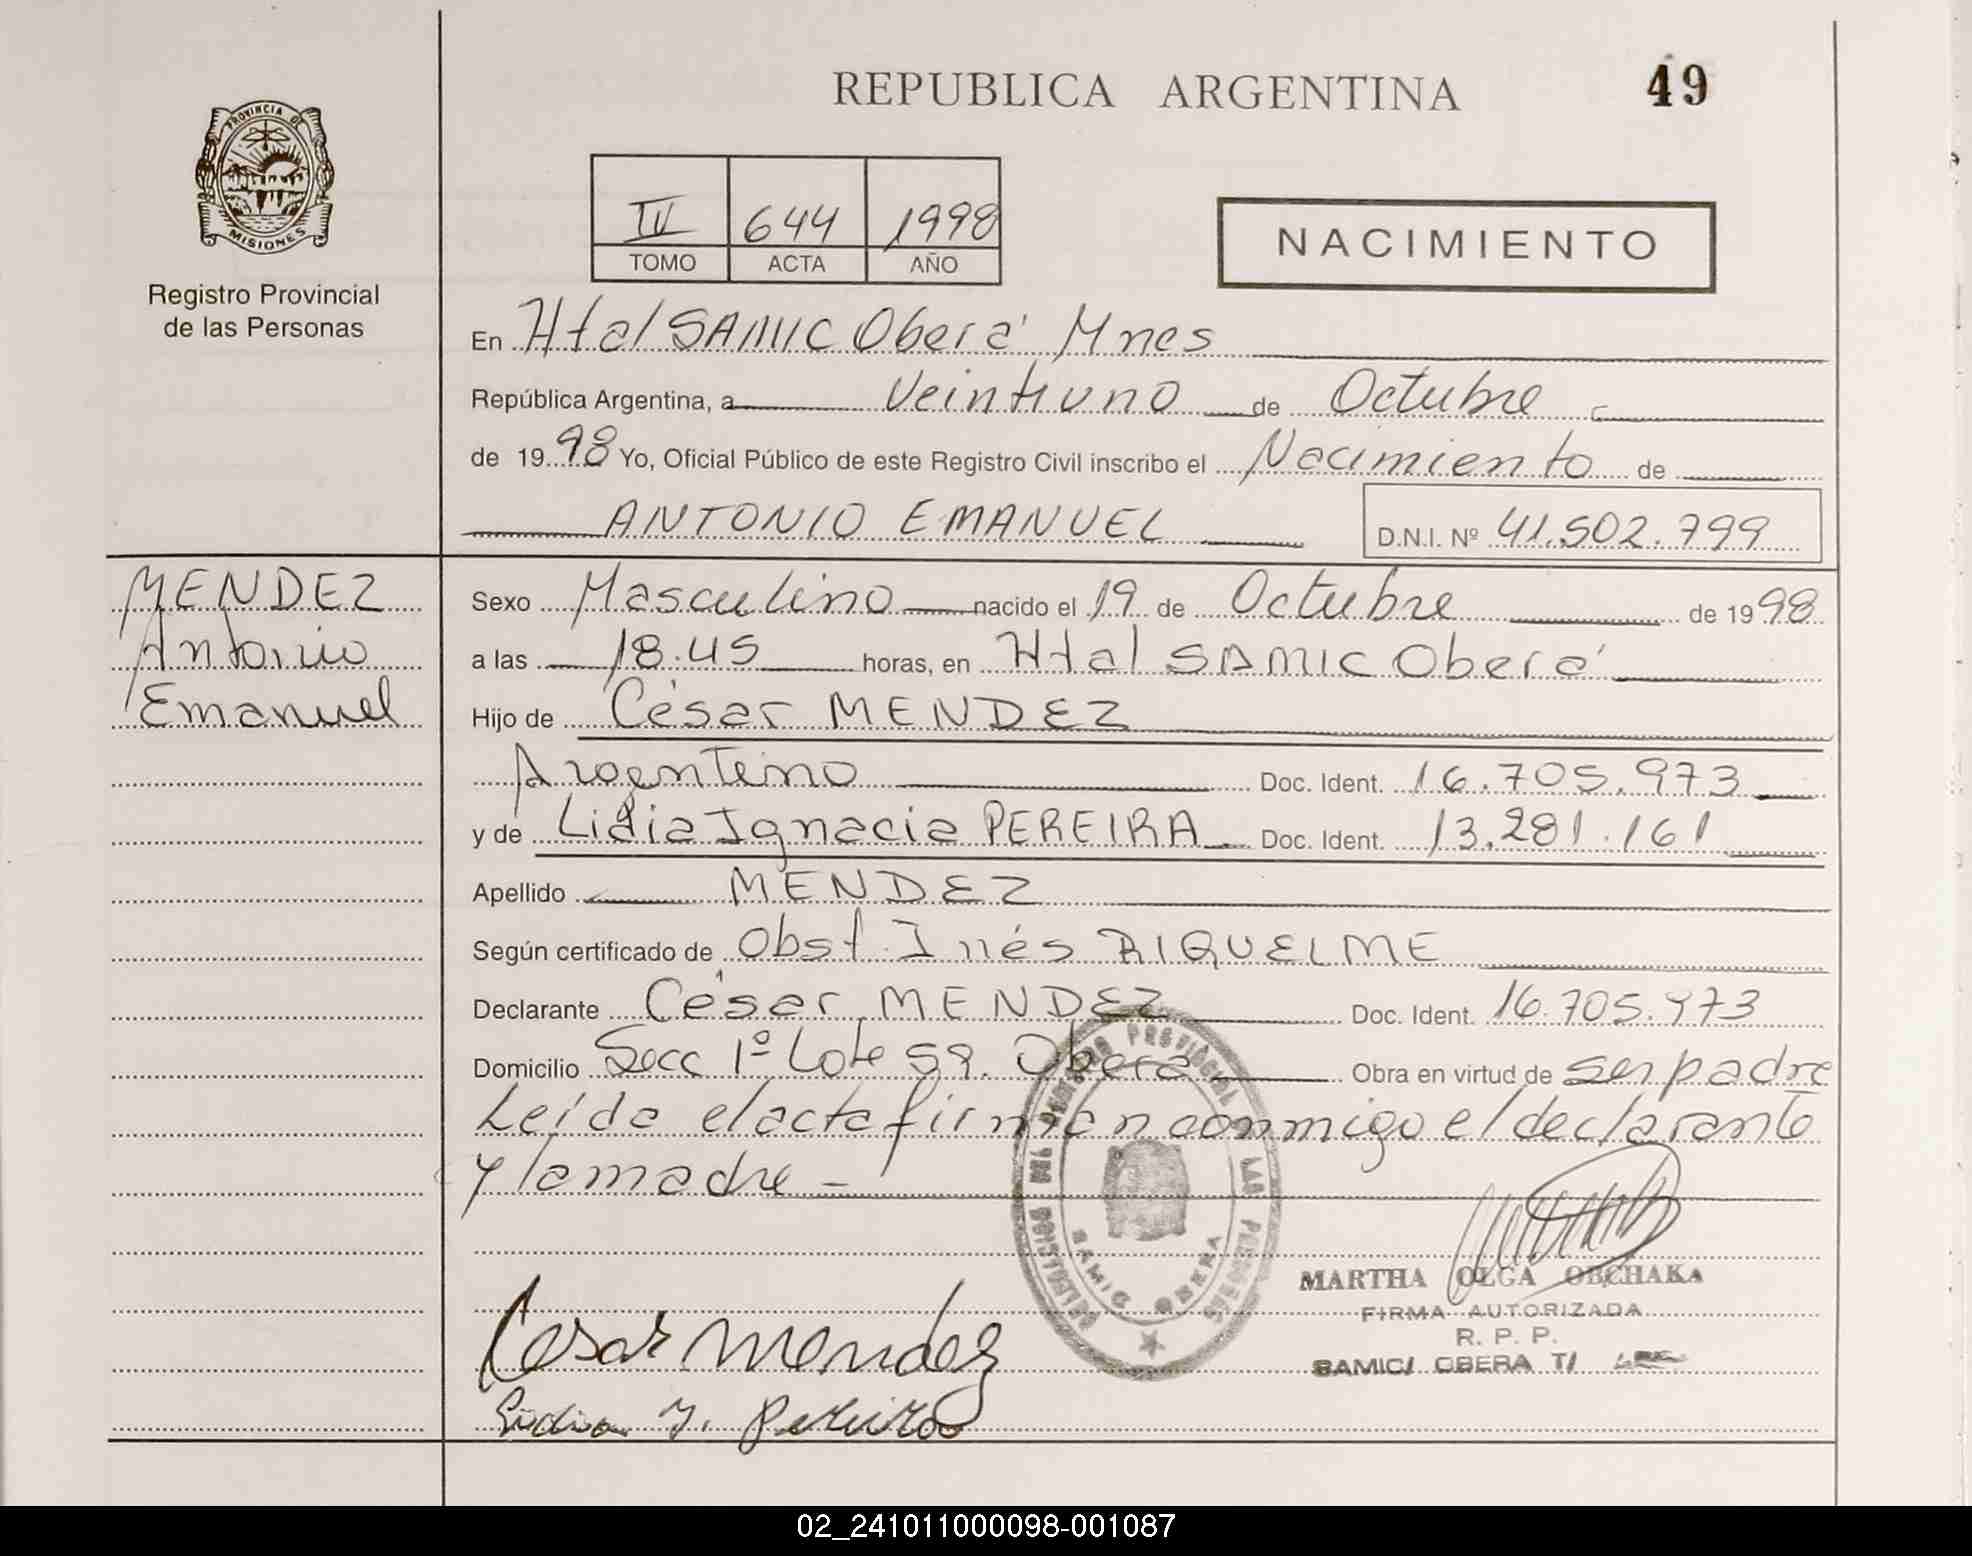 REPUBLICA ARGENTINA
49
PROVINCIA DE
MISIONES
Registro Provincial
de las Personas
IV 644 1998
TOMO ACTA AÑO
NACIMIENTO
En Htal SAMIC Oberá Mnes
República Argentina, a Veintiuno de Octubre
de 1998 Yo, Oficial Público de este Registro Civil inscribo el Nacimiento de
ANTONIO EMANUEL D.N.I. Nº 41.502.799
MENDEZ
Antonio
Emanuel
Sexo Masculino nacido el 19 de Octubre de 1998
a las 18.45 horas, en Htal SAMIC Oberá
Hijo de César MENDEZ
Argentino Doc. Ident. 16.705.973
y de Lidia Ignacia PEREIRA Doc. Ident. 13.281.161
Apellido MENDEZ
Según certificado de Obst. Inés RIQUELME
Declarante César MENDEZ Doc. Ident. 16.705.973
Domicilio Secc 1º Lote 59. Oberá Obra en virtud de ser padre
Leída el acta firman conmigo el declarante
y la madre -
SAMIC OBERA
MARTHA OLGA OBCHAKA
FIRMA AUTORIZADA
R. P. P.
SAMIC/ OBERA T/
Cesar Mendez
Lidia I. Pereira
02_241011000098-001087